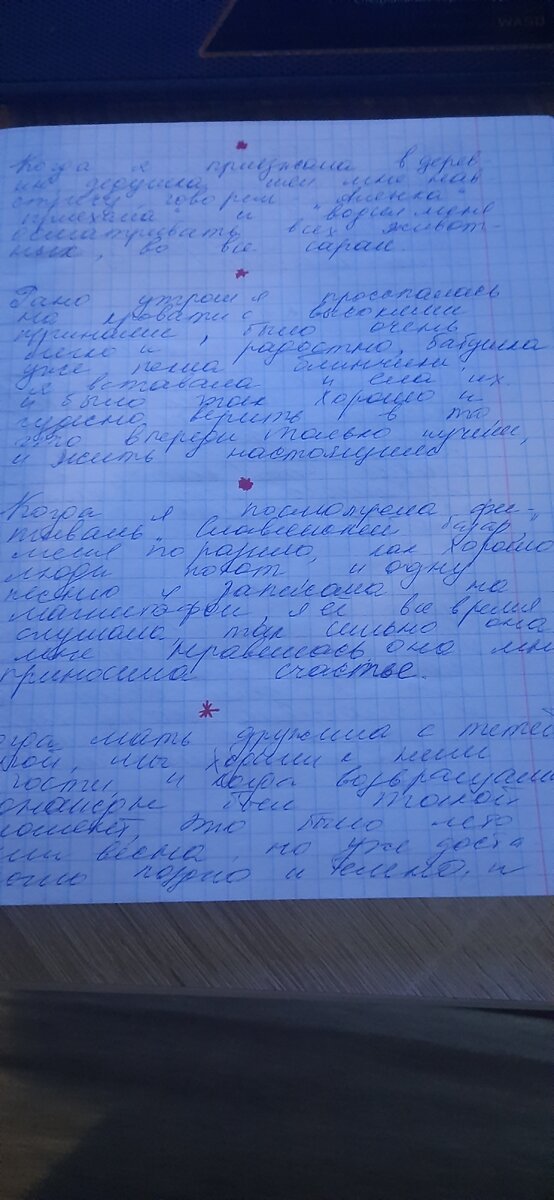 Когда я приезжала в дерев-
ню дедушка шел мне нав
стречу, говорил "Аленка
приехала" и водил меня
осматривать всех живот-
ных, во все сараи.
Рано утром я просыпалась
на кровати с высокими
перинами, было очень
и радостно, бабушка
уже пекла блинчики,
я вставала и ела их.
и было так хорошо и
чудесно верить в то
что впереди только лучшее,
и жить настоящим
Когда я посмотрела фе-
стиваль "Славянский базар"
меня поразило, как хорошо
люди поют и одну
песню я записала на
магнитофон, я её все время
слушала, так сильно она
мне нравилась она мне
приносила счастье.
огда мать дружила с тетей
мы ходили к ним
гости, и когда возвращали
был такой
момент, это было лето
или весна, но уже доста
очно поздно и темно, и